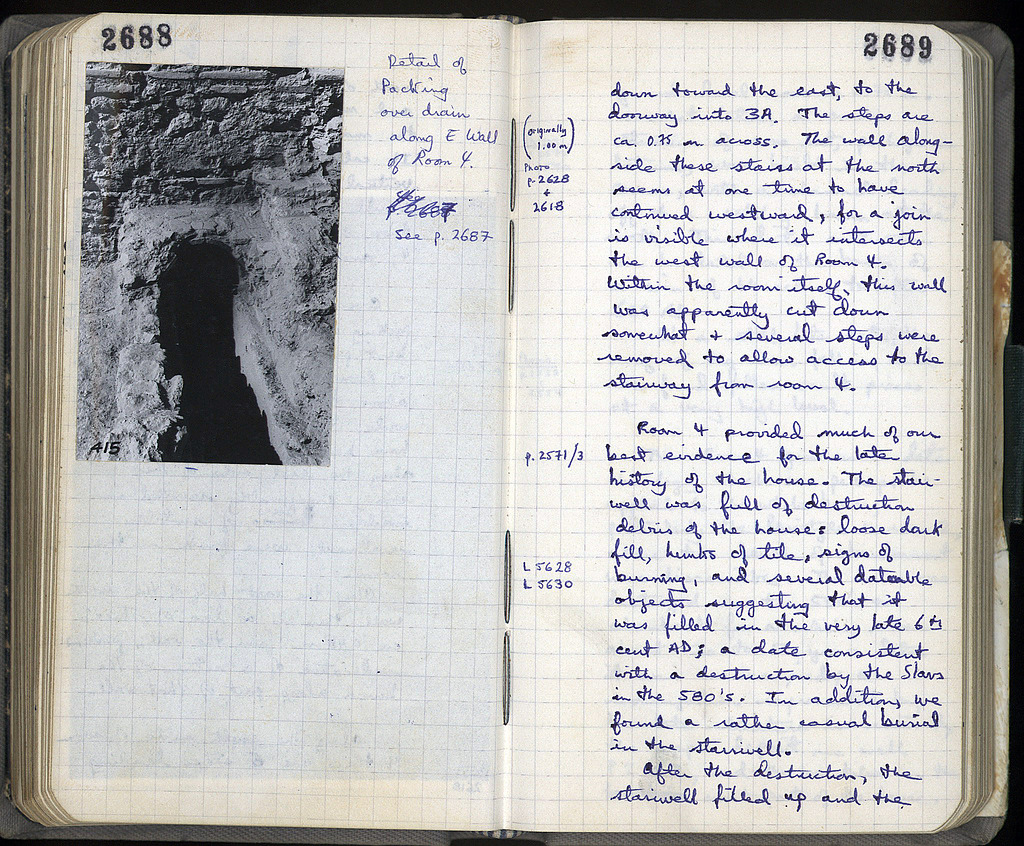 2688
Detail of
Packing
over drain
along E Wall
of Room 4.
p. 2687
See p. 2687
415
2689
(originally
1.00 m)
Photo
p. 2628
+
2618
p. 2571/3
L 5628
L 5630
down toward the east, to the
doorway into 3A. The steps are
ca. 0.75 m across. The wall along-
side these stairs at the north
seems at one time to have
continued westward, for a join
is visible where it intersects
the west wall of Room 4.
Within the room itself, this wall
was apparently cut down
somewhat + several steps were
removed to allow access to the
stairway from room 4.
Room 4 provided much of our
best evidence for the late
history of the house. The stair-
well was full of destruction
debris of the house: loose dark
fill, hunks of tile, signs of
burning, and several dateable
objects suggesting that it
was filled in the very late 6th
cent AD; a date consistent
with a destruction by the Slavs
in the 580's. In addition, we
found a rather casual burial
in the stairwell.
After the destruction, the
stairwell filled up and the